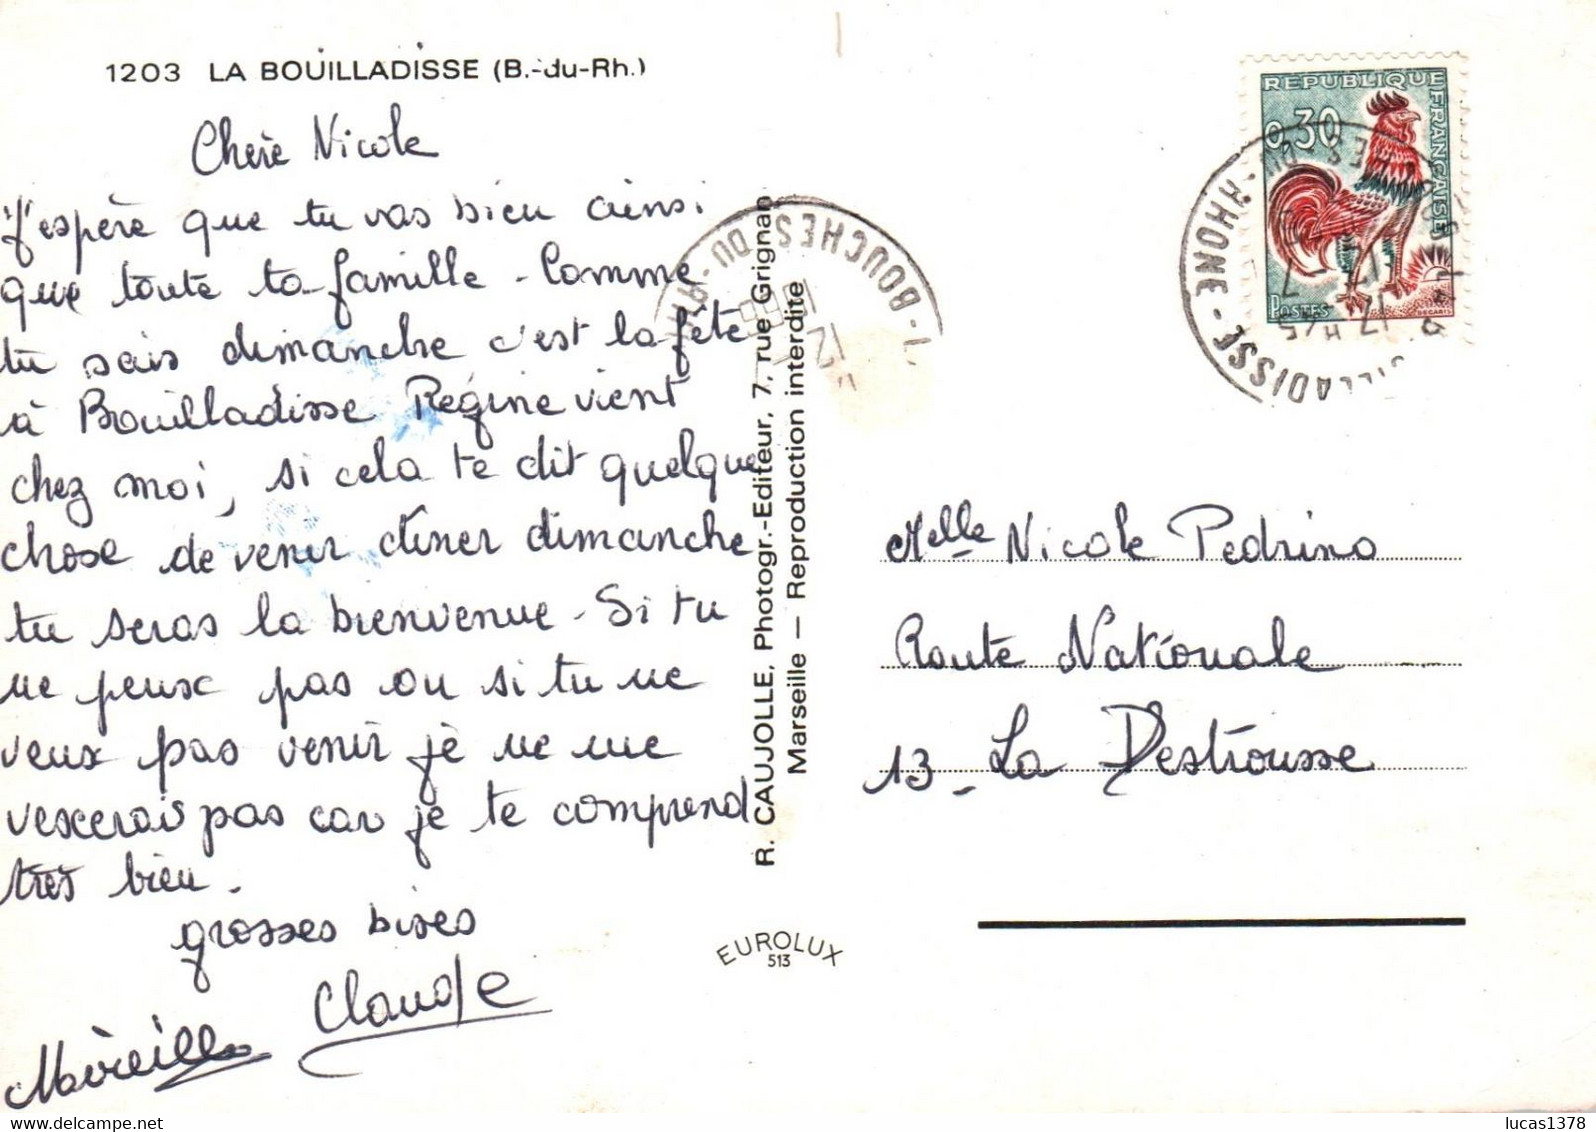 1203 LA BOUILLADISSE (B.-du-Rh.)
Chère Nicole
J'espère que tu vas bien ainsi
que toute ta famille - Comme
tu sais dimanche c'est la fête
à Bouilladisse Régine vient
chez moi, si cela te dit quelque
chose de venir dîner dimanche
tu seras la bienvenue - Si tu
ne peux pas ou si tu ne
veux pas venir je ne me
vexcerais pas car je te comprend
très bien -
grosses bises
Claude
Mireille
R. CAUJOLLE, Photogr.-Editeur, 7, rue Grignan
Marseille — Reproduction interdite
EUROLUX
513
REPUBLIQUE FRANÇAISE
0,30
POSTES
DECARIS
BOUCHES DU
12
1966
17 H/5
RHONE -
Melle Nicole Pedrino
Route Nationale
13 - La Destrousse
delcampe.net
lucas1378